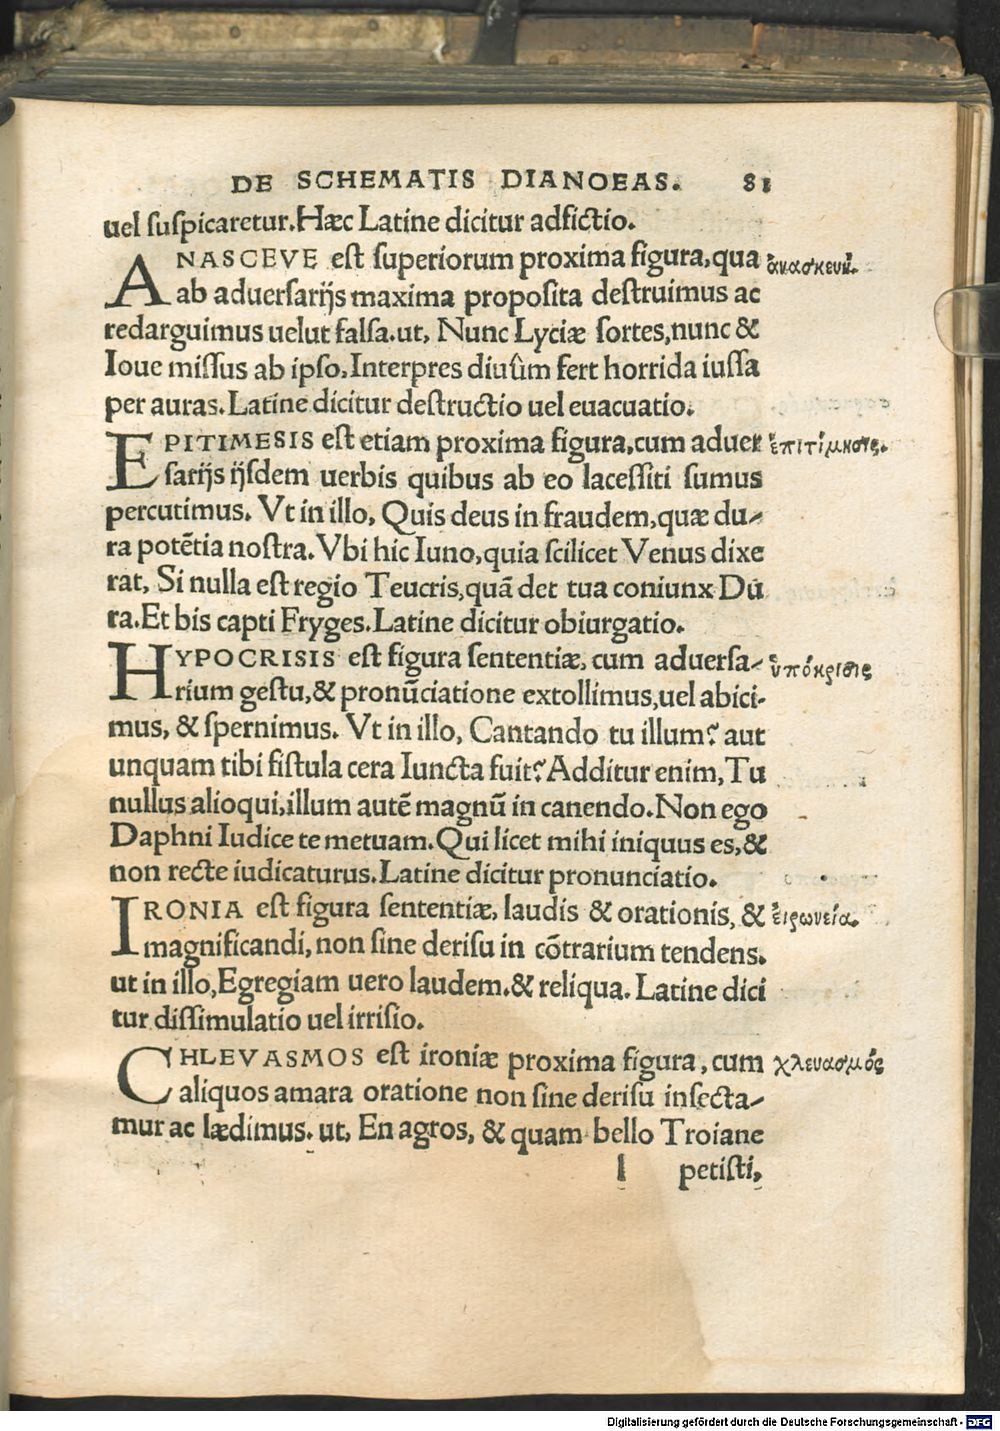 DE SCHEMATIS DIANOEAS. 81
uel suspicaretur. Hæc Latine dicitur adfictio.
ANASCEVE est superiorum proxima figura, qua ἀνασκευὴ.
ab aduersarijs maxima proposita destruimus ac
redarguimus uelut falsa. ut, Nunc Lyciæ sortes, nunc &
Ioue missus ab ipso, Interpres diuûm fert horrida iussa
per auras. Latine dicitur destructio uel euacuatio.
EPITIMESIS est etiam proxima figura, cum aduer ἐπιτίμησις.
sarijs ijsdem uerbis quibus ab eo lacessiti sumus
percutimus. Vt in illo, Quis deus in fraudem, quæ du-
ra potētia nostra. Vbi hic Iuno, quia scilicet Venus dixe
rat, Si nulla est regio Teucris, quā det tua coniunx Du
ra. Et bis capti Fryges. Latine dicitur obiurgatio.
HYPOCRISIS est figura sententiæ, cum aduersa- ὑπόκρισις
rium gestu, & pronūciatione extollimus, uel abici-
mus, & spernimus. Vt in illo, Cantando tu illum? aut
unquam tibi fistula cera Iuncta fuit? Additur enim, Tu
nullus alioqui, illum autē magnū in canendo. Non ego
Daphni Iudice te metuam. Qui licet mihi iniquus es, &
non recte iudicaturus. Latine dicitur pronunciatio.
IRONIA est figura sententiæ, laudis & orationis, & εἰρωνεία.
magnificandi, non sine derisu in cōtrarium tendens.
ut in illo, Egregiam uero laudem. & reliqua. Latine dici
tur dissimulatio uel irrisio.
CHLEVASMOS est ironiæ proxima figura, cum χλευασμός
aliquos amara oratione non sine derisu insecta-
mur ac lædimus. ut, En agros, & quam bello Troiane
l petisti,
Digitalisierung gefördert durch die Deutsche Forschungsgemeinschaft - DFG